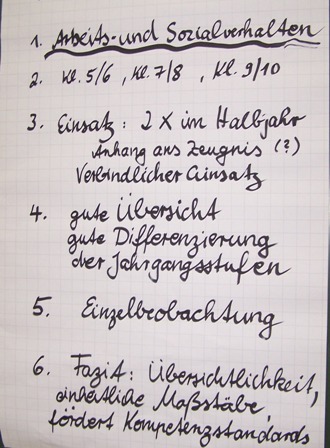 1. Arbeits- und Sozialverhalten
2. Kl. 5/6, Kl. 7/8, Kl. 9/10
3. Einsatz: 2 x im Halbjahr
Anhang ans Zeugnis (?)
Verbindlicher Einsatz
4. gute Übersicht
gute Differenzierung
der Jahrgangsstufen
5. Einzelbeobachtung
6. Fazit: Übersichtlichkeit,
einheitliche Maßstäbe,
fördert Kompetenzstandards